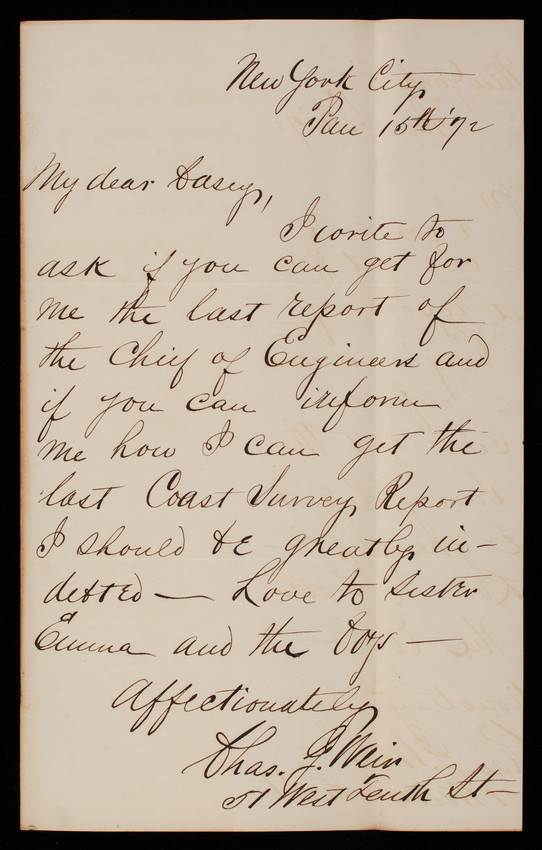 New York City,
Jan 15th '72
My dear Casey,
I write to
ask if you can get for
me the last report of
the Chief of Engineers and
if you can inform
me how I can get the
last Coast Survey Report
I should be greatly in-
debted — Love to Sister
Emma and the boys —
Affectionately
Chas. J. Weir
51 West Tenth St —